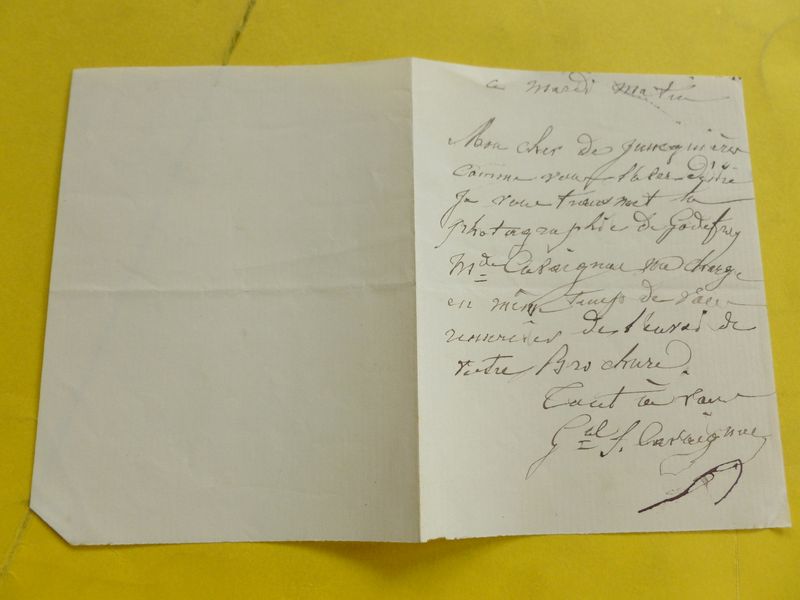 ce mardi matin
Mon cher de
comme vous l'avez désiré
Je vous transmet la
photographie de Godefroy
Mde Cavaignac me charge
en même temps de vous
remercier de l'envoi de
votre Brochure.
Tout à vous
Gal J. Cavaignac